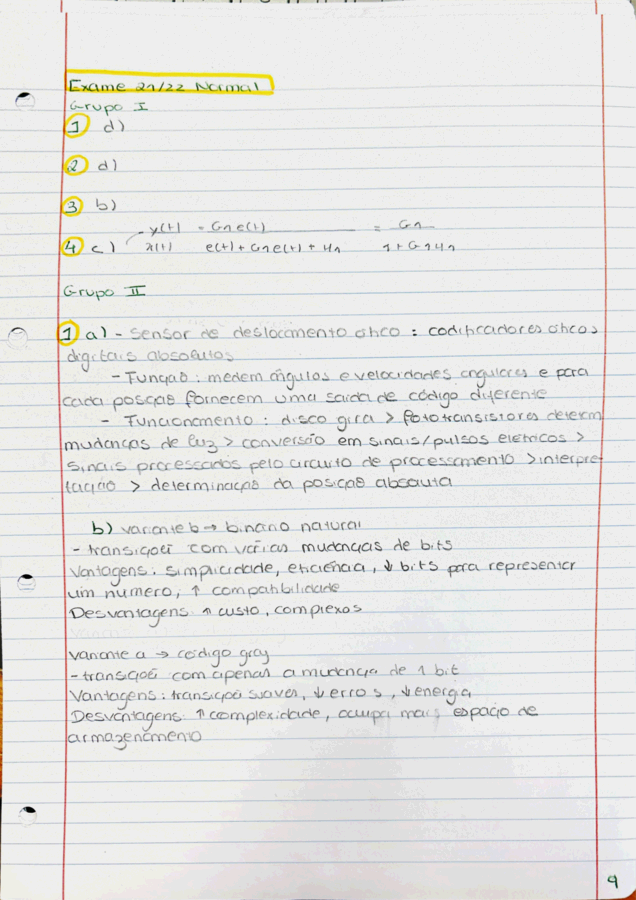 Exame 21/22 Normal
Grupo I
1 d)
2 d)
3 b)
y(t) = G1 e(t) = G1
4 c) x(t) e(t) + G1 e(t) + H1 1 + G1 H1
Grupo II
1 a) - Sensor de deslocamento ótico : codificadores óticos
digitais absolutos
- Função : medem ângulos e velocidades angulares e para
cada posição fornecem uma saída de código diferente
- Funcionamento : disco gira > fototransístores determ
mudanças de luz > conversão em sinais/pulsos elétricos >
sinais processados pelo circuito de processamento > interpre
tação > determinação da posição absouta
b) variante b → binário natural
- transiçoẽ com várias mudanças de bits
Vantagens : simplicidade, eficiência, ↓ bits para representar
um número, ↑ compatibilidade
Desvantagens : ↑ custo, complexos
variante a → código gray
- transiçoẽ com apenas a mudança de 1 bit
Vantagens : transiçoẽ suaves, ↓ erros, ↓ energia
Desvantagens : ↑ complexidade, ocupa mais espaço de
armazenamento
9